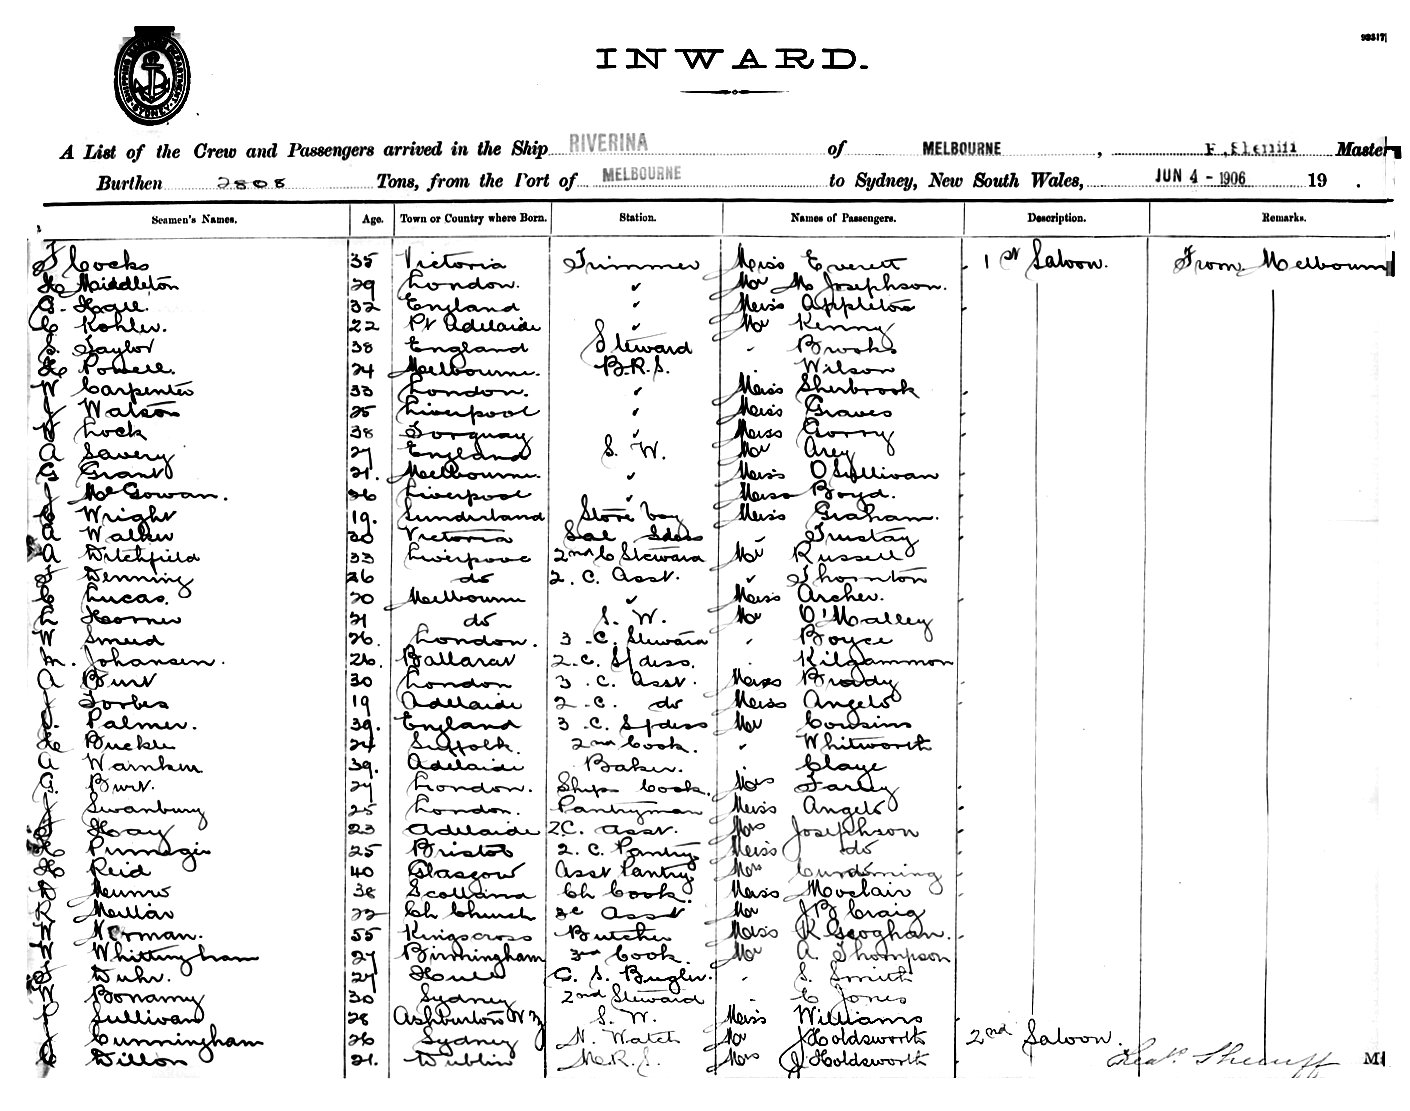 INWARD.
A List of the Crew and Passengers arrived in the Ship RIVERINA of MELBOURNE, Master
Burthen 2808 Tons, from the Port of MELBOURNE to Sydney, New South Wales, JUN 4 - 1906 19 .
Seamen's Names. Age. Town or Country where Born. Station. Names of Passengers. Description. Remarks.
F Cocks 35 Victoria Trimmer Miss Everett 1st Saloon. From Melbourne
H Middleton 29 London. ✓ Mr M Josephson.
Hall. 32 England ✓ Miss Appleton
C Kohler. 22 Pt Adelaide ✓ Mr Kenny
S. Taylor 38 England Steward " Brooks
H Powell. 24 Melbourne. B.R.S. " Wilson
W Carpenter 33 London. ✓ Miss Sherbrook
J Watson 25 Liverpool ✓ Miss Graves
Lock 38 Torquay ✓ Miss Gorry
A Savery 27 England S. W. Mr Arey
G Grant 21. Melbourne. ✓ Miss O'Sullivan
J McGowan. 26 Liverpool ✓ Miss Boyd.
C Wright 19. Sunderland Store boy Miss Graham.
A Walker 30 Victoria Sal Stdess " Trustay
A Ditchfield 33 Liverpool 2nd C Steward Mr Russell
Denning 26 do 2. C. Asst. " Thornton
C Lucas. 20 Melbourne ✓ Miss Archer.
L Horner 21 do S. W. Mr O'Malley
W Smeed 26. London. 3 .C. Steward " Boyce
M. Johansen. 26. Ballarat 2.C. S/dess. " Kilgammon
A Burt 30 London 3 .C. Asst. Miss Brady
J Forbes 19 Adelaide 2.C. do Miss Angelo
Palmer. 39. England 3 .C. S/dess Mr Cousins
H Buckle 24 Suffolk. 2nd Cook. " Whitworth
A Warnken 39. Adelaide Baker. " Claye
Burt. 27 London. Ships Cook. Mrs Farley
J Swanbury 25 London. Pantryman Miss Angelo
Hay 23 Adelaide 2C. Asst. Mrs Josephson
H 25 Bristol 2.C. Pantry. Miss do
H Reid 40 Glasgow Asst Pantry. Mrs
Munro 38 Scotland Ch Cook. Miss Moclair
Millar 22 Ch Church 3c Asst Mr J B Craig
Norman. 55 Kingscross Butcher Miss K Geoghan.
W Whittingham 27 Birmingham 3rd Cook. Mr A Thompson
Duhr. 27 Hull G. S. Bugler. " S. Smith
W Bonamy 30 Sydney 2nd Steward " C Jones
Sullivan 28 Ashburton N Z S. W. Miss Williams
J Cunningham 26 Sydney N. Watch Mr J Holdsworth 2nd Saloon.
C Dillon 21. Dublin M.R.S. Mrs J Holdsworth